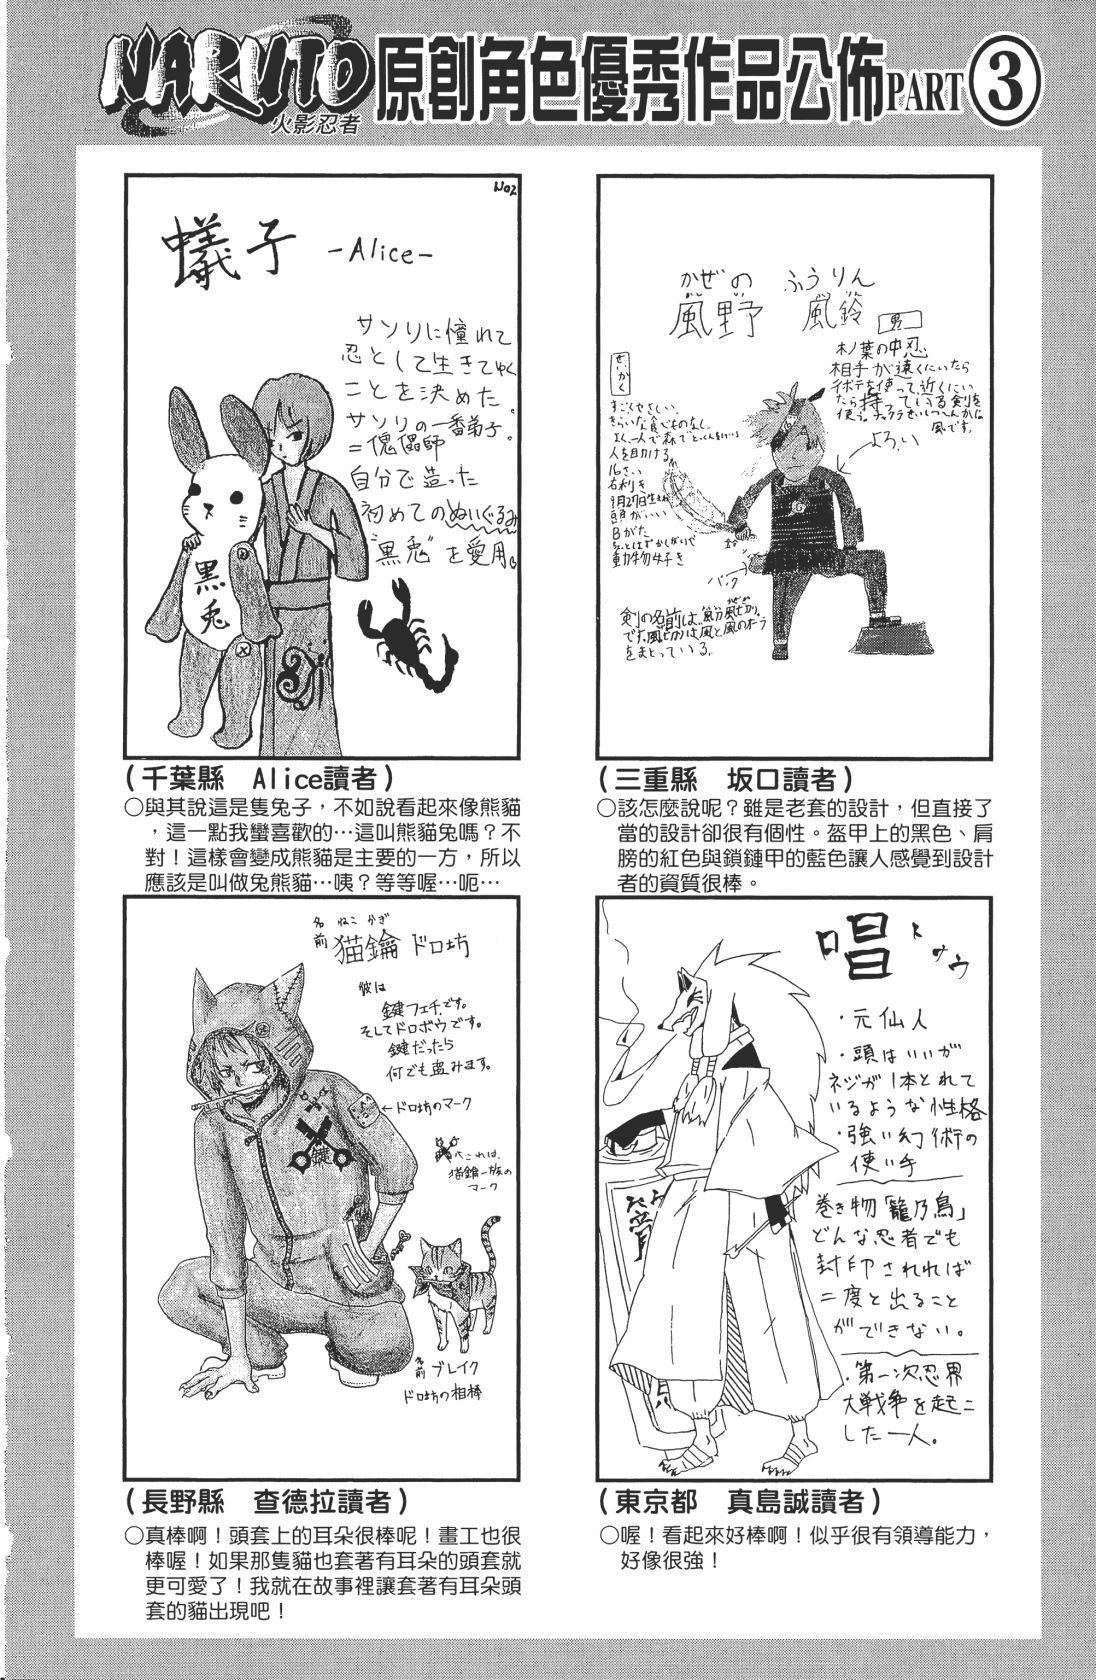 NARUTO
火影忍者
原創角色優秀作品公佈PART③
No2
蟻子 -Alice-
サソリに憧れて
忍として生きてゆく
ことを決めた。
サソリの一番弟子。
=傀儡師
自分で造った
初めてのぬいぐるみ
"黒兎"を愛用。
黒兎
(千葉縣 Alice讀者)
○與其說這是隻兔子，不如說看起來像熊貓
，這一點我蠻喜歡的…這叫熊貓兔嗎？不
對！這樣會變成熊貓是主要的一方，所以
應該是叫做兔熊貓…咦？等等喔…呃…
かぜの ふうりん
風野 風鈴
男
木ノ葉の中忍
相手が遠くにいたら
たら持っている剣を
風です。
よろい
せいかく
すごくやさしい。
人を助ける。
16さい
右利き
9月27日生まれ
頭がいい
B がた
動物好き
バンク
をまとっている。
(三重縣 坂口讀者)
○該怎麼說呢？雖是老套的設計，但直接了
當的設計卻很有個性。盔甲上的黑色、肩
膀的紅色與鎖鏈甲的藍色讓人感覺到設計
者的資質很棒。
名前 ねこ かぎ
猫鑰 ドロ坊
彼は
鍵フェチです。
そしてドロボウです。
鍵だったら
何でも盗みます。
←ドロ坊のマーク
これは、
猫鑰一族の
マーク
鍵
名前 ブレイク
ドロ坊の相棒
(長野縣 查德拉讀者)
○真棒啊！頭套上的耳朵很棒呢！畫工也很
棒喔！如果那隻貓也套著有耳朵的頭套就
更可愛了！我就在故事裡讓套著有耳朵頭
套的貓出現吧！
唱 トナウ
・元仙人
・頭はいいが
ネジが1本とれて
いるような性格
・強い幻術の
使い手
巻き物「籠乃鳥」
どんな忍者でも
封印されれば
二度と出ること
ができない。
・第一次忍界
大戦争を起こ
した一人。
(東京都 真島誠讀者)
○喔！看起來好棒啊！似乎很有領導能力，
好像很強！